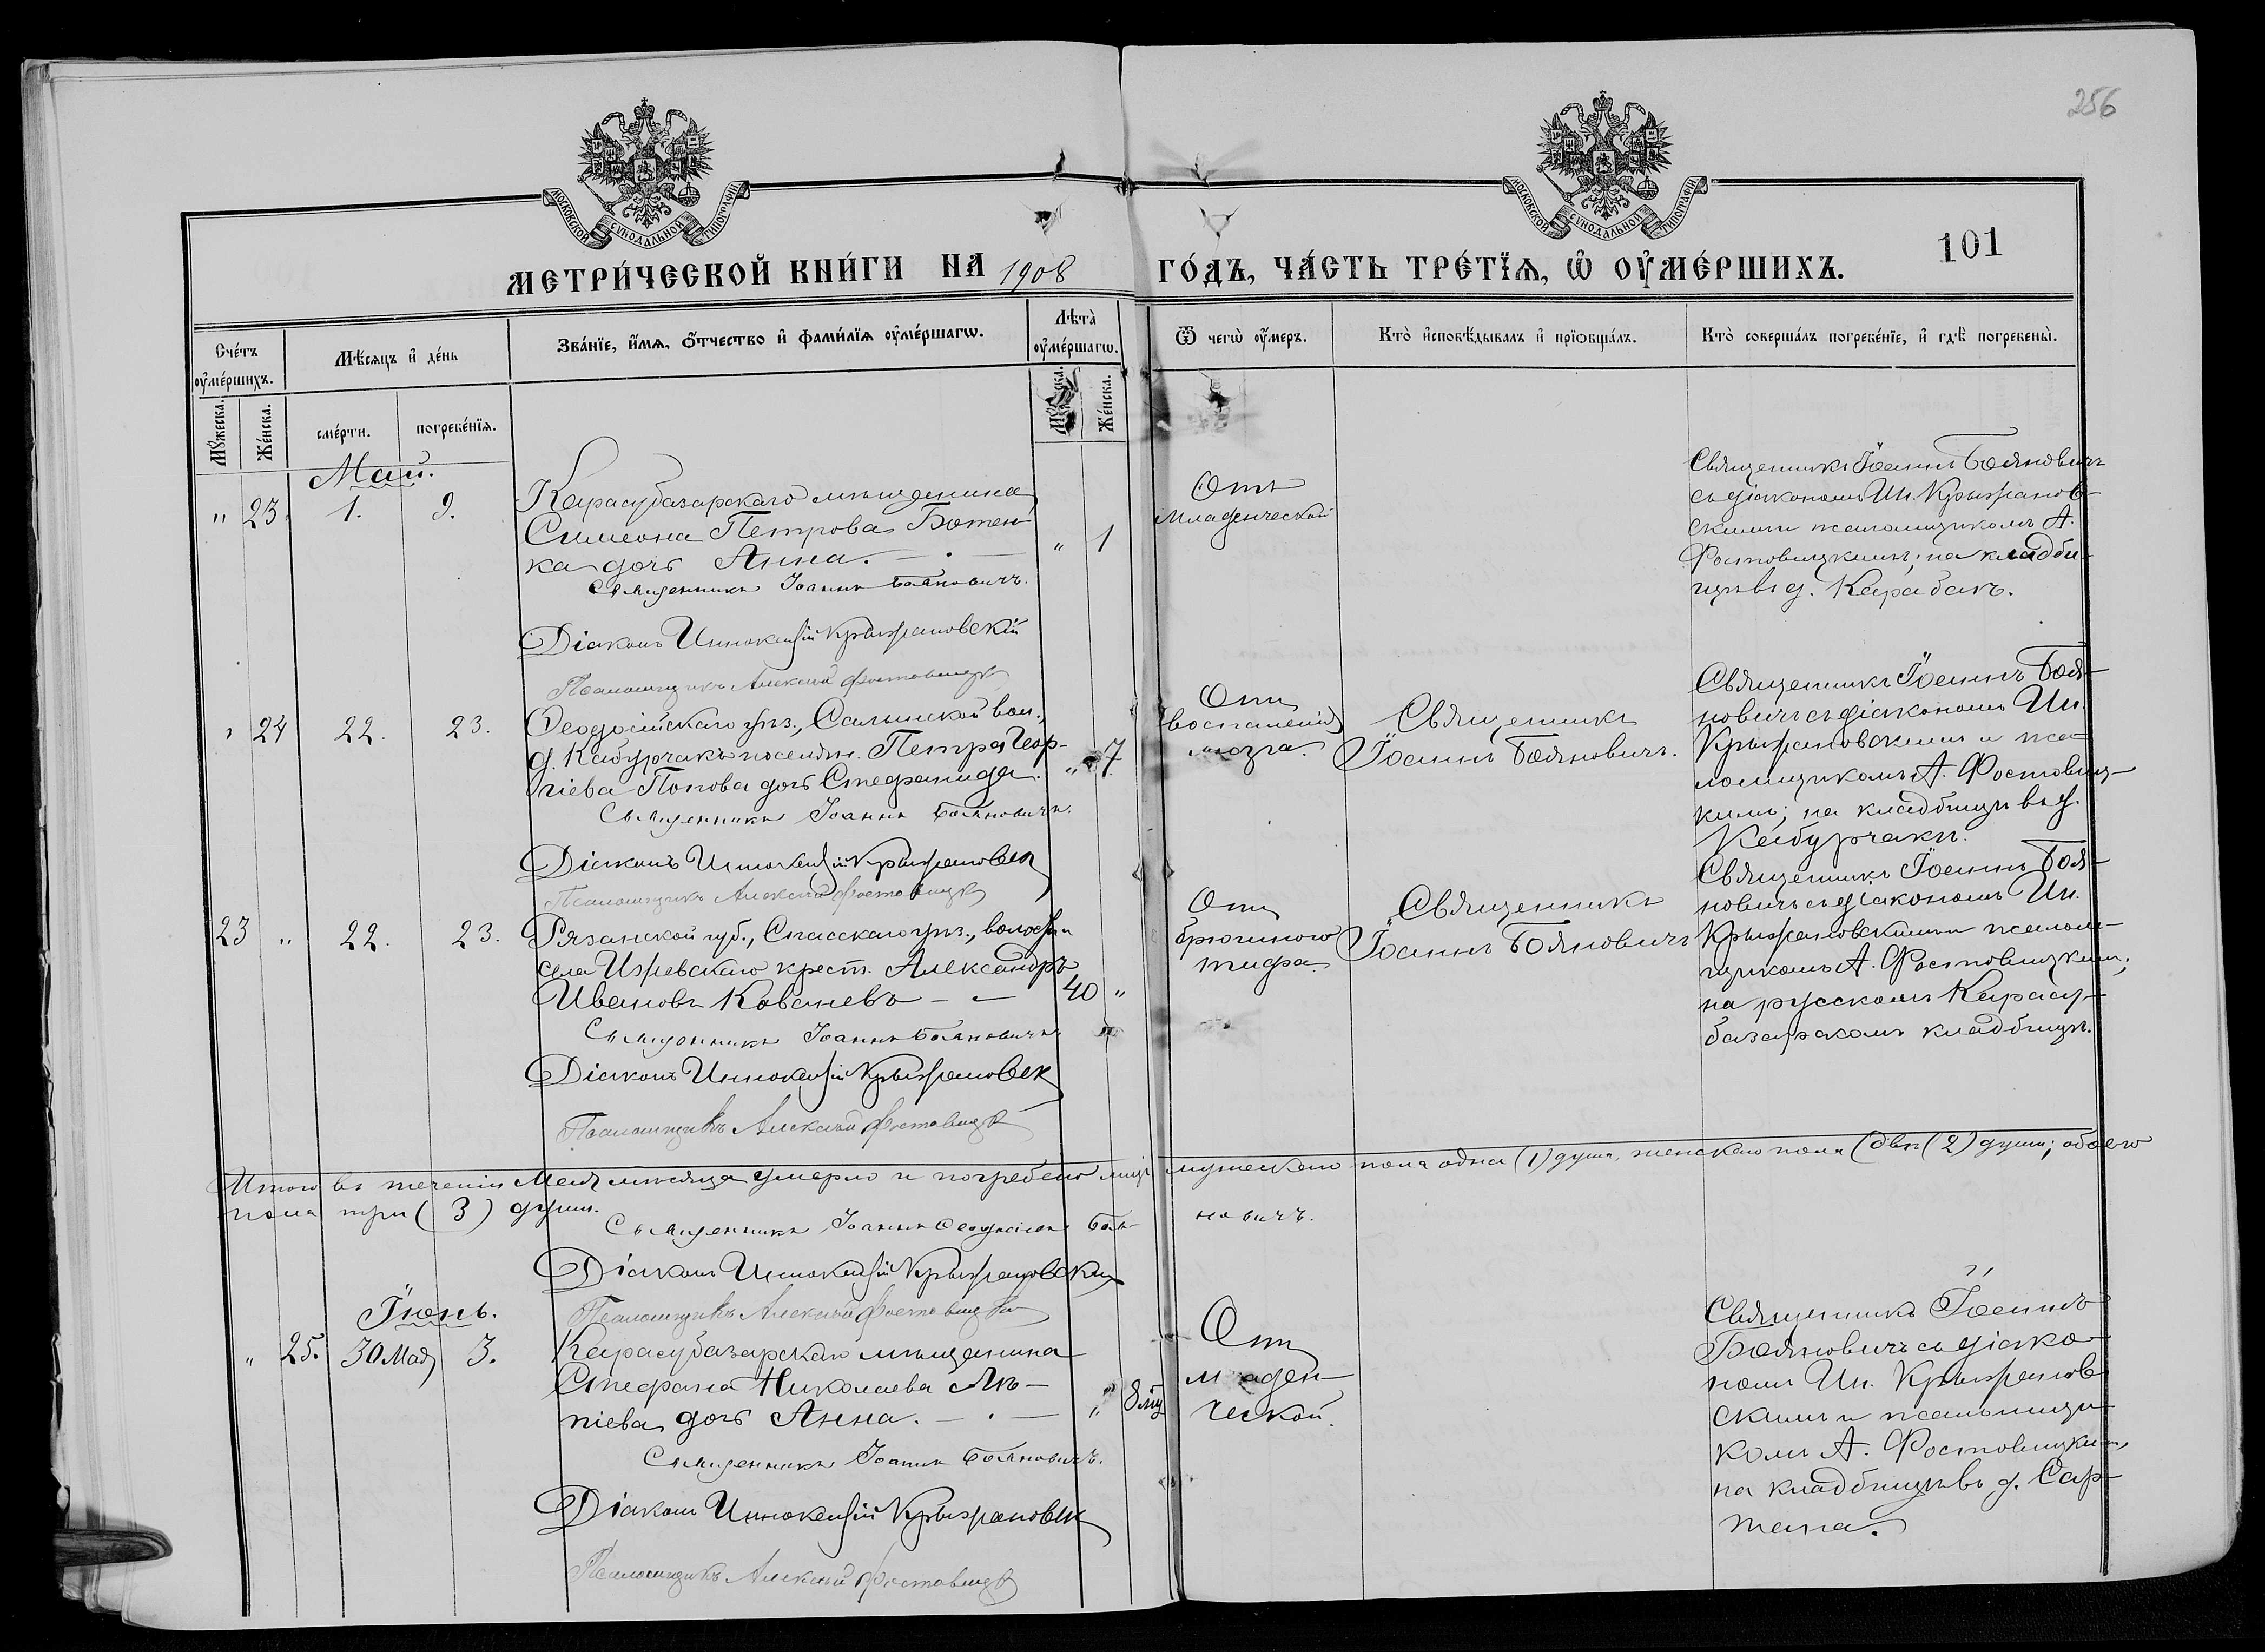 256
МОСКОВСКОЙ СѴНОДАЛЬНОЙ ТИПОГРАФІИ
МОСКОВСКОЙ СѴНОДАЛЬНОЙ ТИПОГРАФІИ
101
МЕТРИ́ЧЕСКОЙ КНИ́ГИ НА 1908 ГО́ДЪ, ЧА́СТЬ ТРЕ́ТЇѦ, Ѡ҆ ОУ҆МЕ́РШИХЪ.
Сче́тъ оу҆ме́ршихъ.
Мѣ́сяцъ и҆ де́нь
Зва́нїе, и҆́мѧ, ѻ҆́тчество и҆ фами́лїѧ оу҆ме́ршагѡ.
Лѣта̀ оу҆ме́ршагѡ.
Ѿ чегѡ̀ оу҆́меръ.
Кто̀ и҆сповѣ́дывалъ и҆ прїѻбща́лъ.
Кто̀ соверша́лъ погребе́нїе, и҆ гдѣ̀ погребены̀.
Мꙋ́жеска.
Же́нска.
сме́рти.
погребе́нїѧ.
Же́нска.
Май.
" 23. 1. 9.
Карасубазарскаго мѣщанина
Симеона Петрова Ботен-
ка дочь Анна. " 1
Священникъ Іоаннъ Бояновичъ.
Діаконъ Иннокентій Крыжановскій
Псаломщикъ Алексѣй Фостовицкій
Отъ
младенческой
Священникъ Іоаннъ Бояновичъ
съ діакономъ Ин. Крыжанов-
скимъ и псаломщикомъ А.
Фостовицкимъ; на кладби-
щѣ въ д. Карабакъ.
" 24 22. 23.
Ѳеодосійскаго уѣз., Салынской вол.,
д. Кабурчакъ поселян. Петра Геор-
гіева Попова дочь Стефанида. " 7
Священникъ Іоаннъ Бояновичъ.
Діаконъ Иннокентій Крыжановск
Псаломщикъ Алексѣй Фостовицкій
Отъ
воспаленія
мозга.
Священникъ
Іоаннъ Бояновичъ.
Священникъ Іоаннъ Боя-
новичъ съ діакономъ Ин.
Крыжановскимъ и пса-
ломщикомъ А. Фостовиц-
кимъ; на кладбищѣ въ д.
Кабурчакъ.
23 " 22. 23.
Рязанской губ., Спасскаго уѣз., волости и
села Ижевскаго крест. Александръ
Ивановъ Кованевъ 40 "
Священникъ Іоаннъ Бояновичъ
Діаконъ Иннокентій Крыжановск
Псаломщикъ Алексѣй Фостовицкій
Отъ
брюшного
тифа.
Священникъ
Іоаннъ Бояновичъ
Священникъ Іоаннъ Боя-
новичъ съ діакономъ Ин.
Крыжановскимъ и псалом-
щикомъ А. Фостовицкимъ;
на русскомъ Карасу-
базарскомъ кладбищѣ.
Итого въ теченіи Мая мѣсяца умерло и погребено лицъ мужескаго пола одна (1) душа, женскаго пола (двѣ (2) души; обоего
пола три (3) души.
Священникъ Іоаннъ Ѳеодосіевъ Боя-новичъ.
Діаконъ Иннокентій Крыжановскій
Псаломщикъ Алексѣй Фостовицкій
Іюнь.
" 25. 30 Мая 3.
Карасубазарскаго мѣщанина
Стефана Николаева
дочь Анна. " 8 мц
Священникъ Іоаннъ Бояновичъ.
Діаконъ Иннокентій Крыжановск
Псаломщикъ Алексѣй Фостовицкій
Отъ
младен-
ческой.
Священникъ Іоаннъ
Бояновичъ съ діако-
номъ Ин. Крыжанов-
скимъ и псаломщи-
комъ А. Фостовицкимъ,
на кладбищѣ въ д. Сар-
тана.